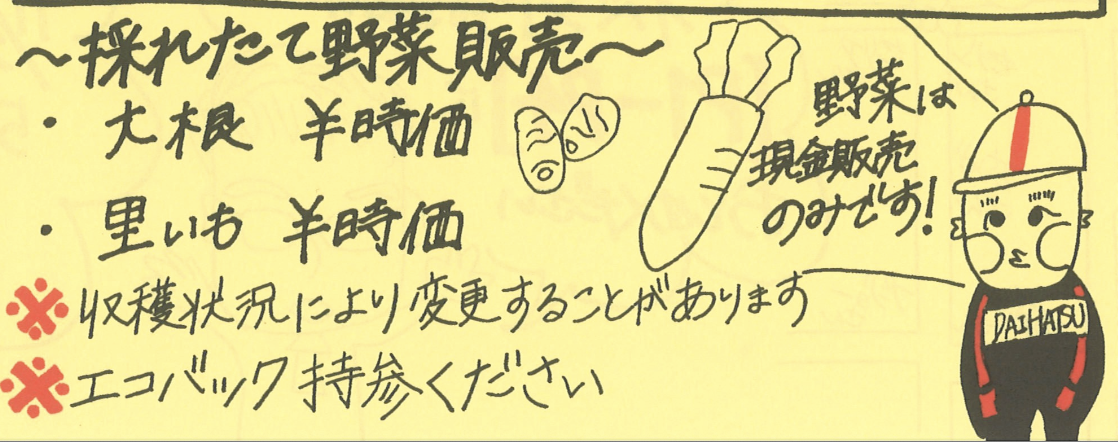 ～採れたて野菜販売～
・大根 半時価
・里いも 半時価
野菜は
現金販売
のみです!
※収穫状況により変更することがあります
※エコバック持参ください
DAIHATSU